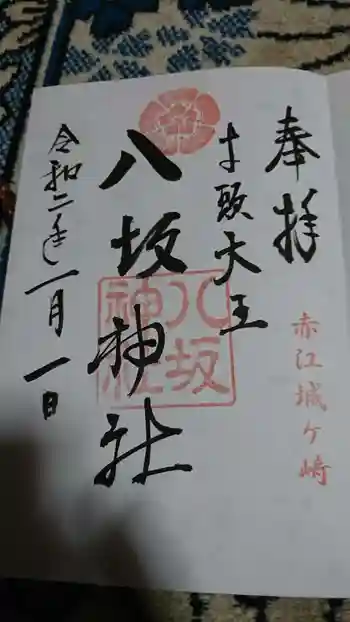 奉拝
赤江城ケ崎
牛頭天王
八坂神社
八坂
神社
令和二年一月一日